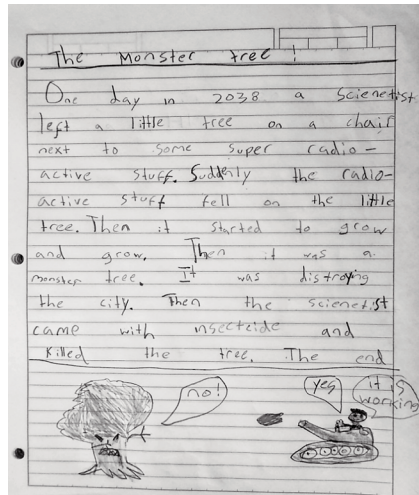 The Monster tree!
One day in 2038 a scienetist
left a little tree on a chair
next to some super radio-
active stuff. Suddenly the radio-
active stuff fell on the little
tree. Then it started to grow
and grow. Then it was a
monster tree. It was distroying
the city. Then the scienetist
came with insecteide and
killed the tree. The end
no!
yes
it is
working